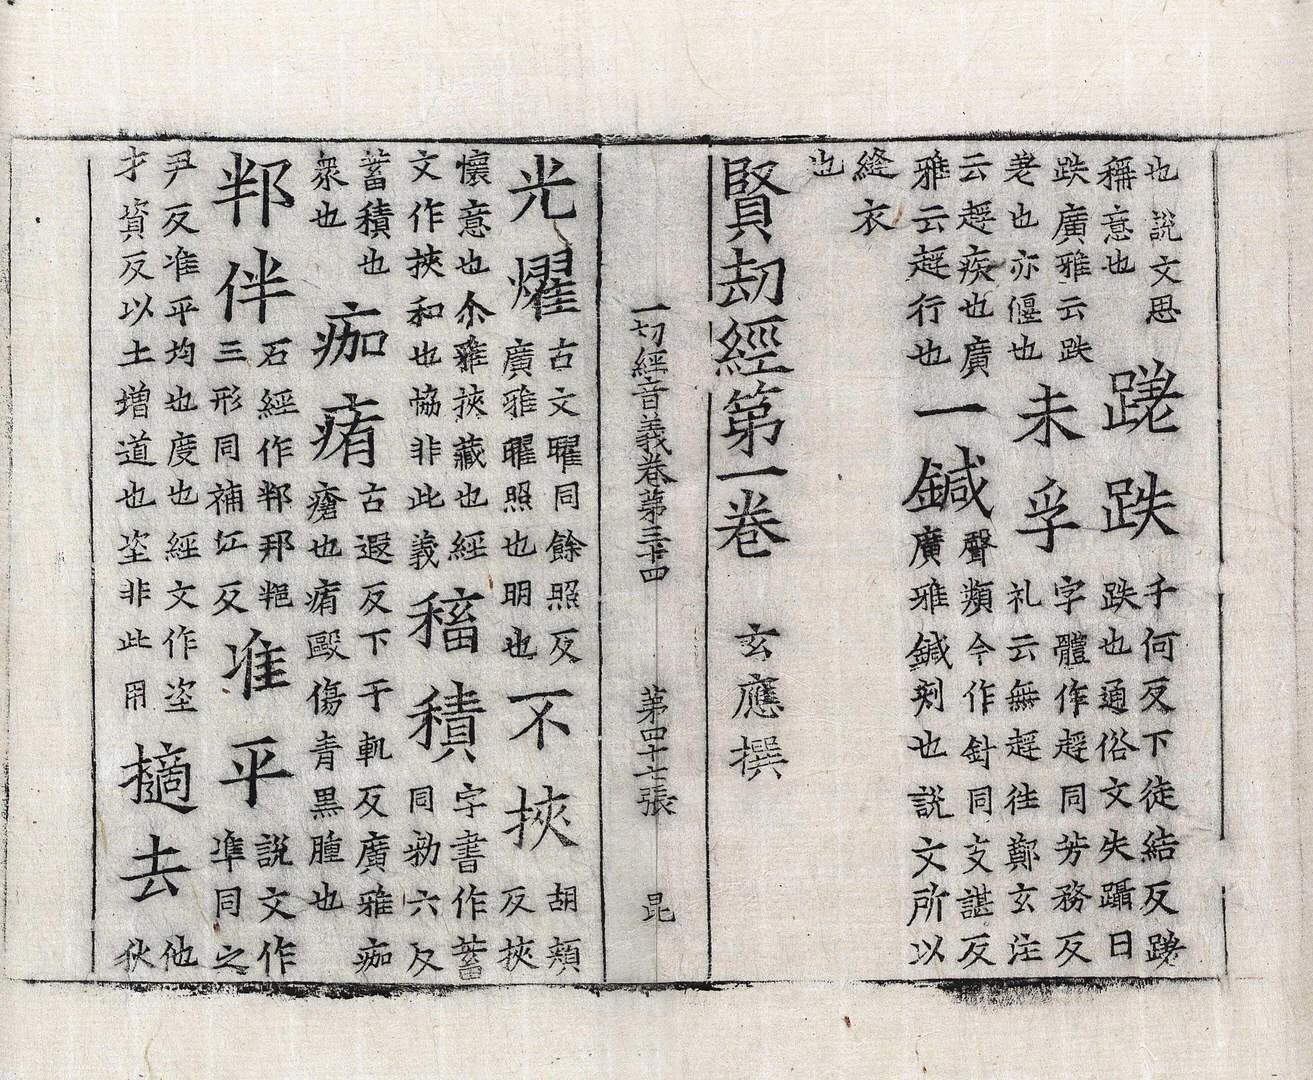 也說文思
稱意也
蹉跌
千何反下徒結反蹉
跌也通俗文失躡曰
跌廣雅云跌
差也亦偃也
未孚
字體作 同芳務反
礼云無 往鄭玄注
云 疾也廣
雅云 行也
一鍼
聲類今作針同支諶反
廣雅鍼刾也說文所以
縫衣
也
賢劫經第一卷 玄應撰
一切經音義卷第三十四 第四十七張 昆
光燿
古文曜同餘照反
廣雅曜照也明也
不挾
胡頰
反挾
懷意也尒雅挾藏也經
文作挾和也協非此義
稸積
字書作蓄
同勑六反
蓄積也
衆也
痂痏
古遐反下于軌反廣雅痂
瘡也痏毆傷青黑腫也
伴
石經作
三形同補江反
准平
說文作
準同之
尹反准平均也度也經文作垐
才資反以土增道也垐非此用
擿去
他
狄